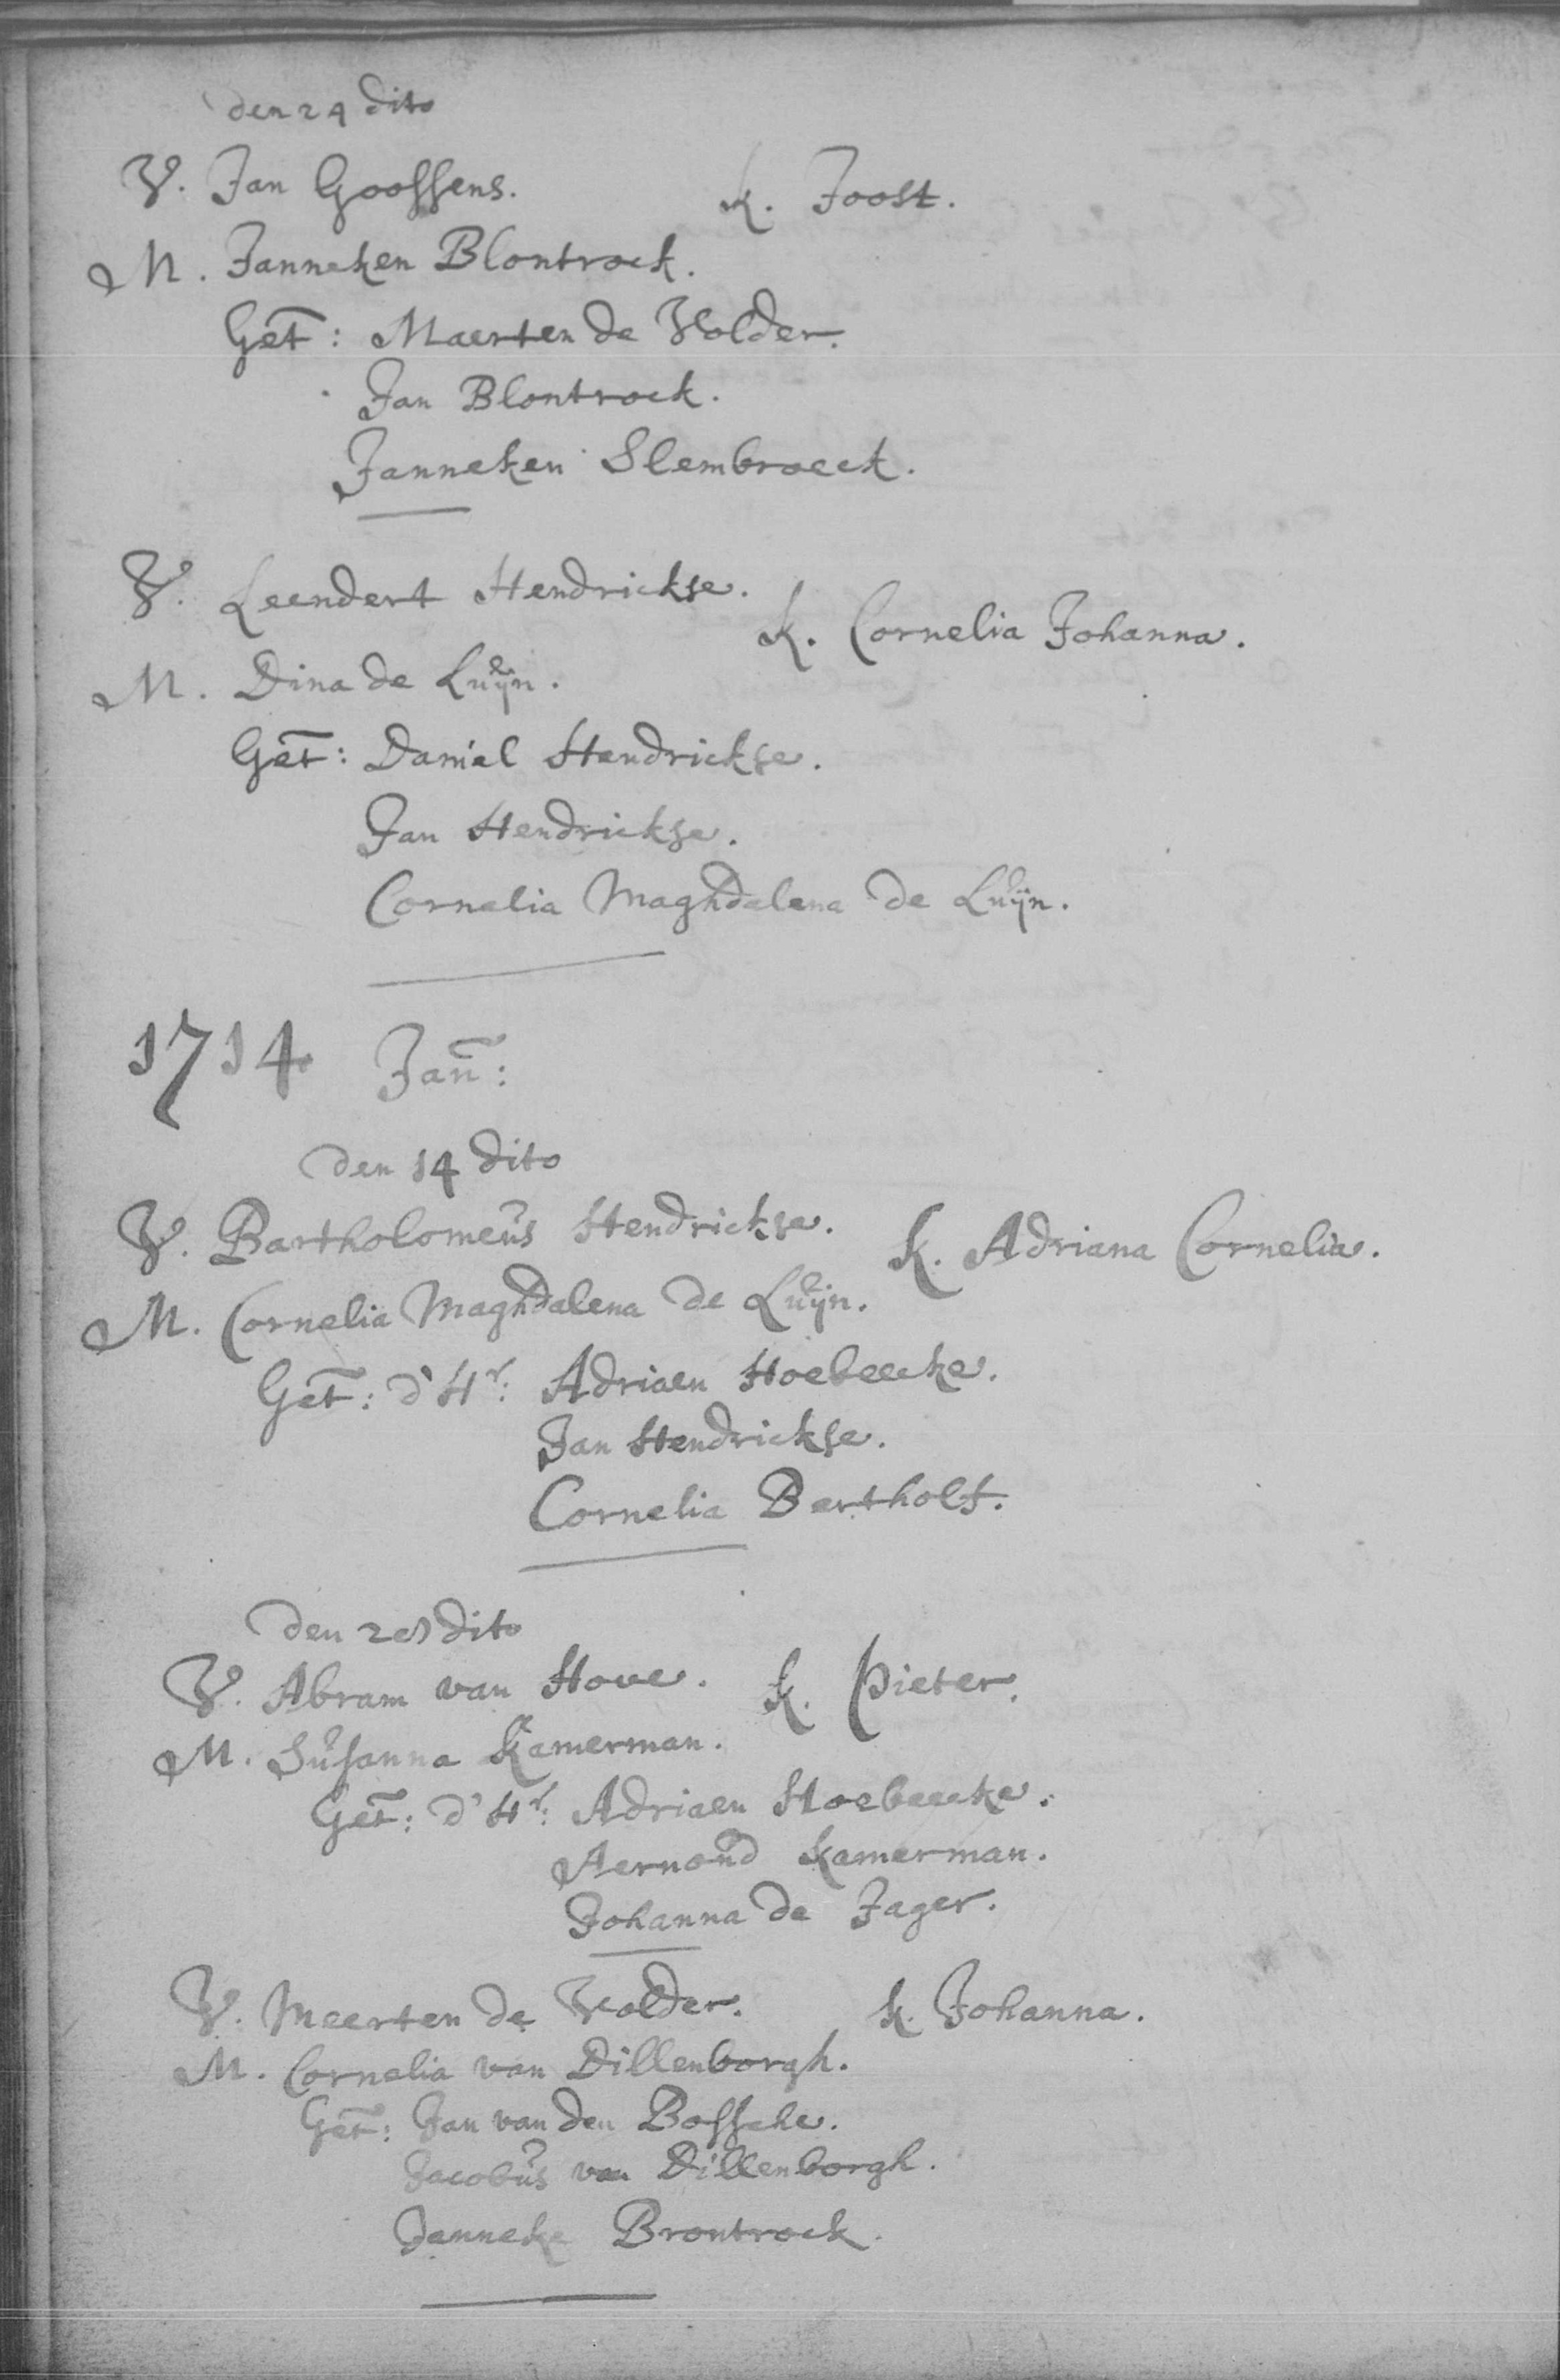 den 24 dito
V. Jan Goossens. K. Joost.
M. Janneken Blontrock.
Get: Maerten de Volder.
Jan Blontrock.
Janneken Slembroeck.
V. Leendert Hendrickse. K. Cornelia Johanna.
M. Dina de Luijn.
Get: Daniel Hendrickse.
Jan Hendrickse.
Cornelia Maghdalena de Luijn.
1714 Jan:
den 14 dito
V. Bartholomeus Hendrickse. K. Adriana Cornelia.
M. Cornelia Maghdalena de Luijn.
Get: d'Hr: Adriaen Hoebeecke.
Jan Hendrickse.
Cornelia Bertholf.
den dito
V. Abram van Hove. K. Pieter.
M. Susanna Kamerman.
Get: d'Hr: Adriaen Hoebeecke.
Aernoud Kamerman.
Johanna de Jager.
V. Meerten de Volder. K. Johanna.
M. Cornelia van Dillenborgh.
Get: Jan van den Bossche.
Jacobus van Dillenborgh.
Janneke Brontrock.